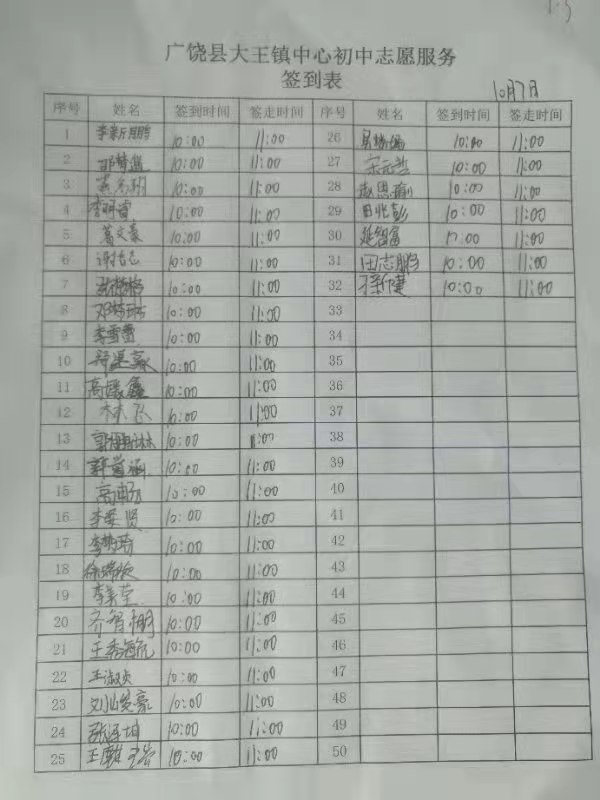 广饶县大王镇中心初中志愿服务
签到表
10月7日
序号 姓名 签到时间 签走时间 序号 姓名 签到时间 签走时间
1 李新鹏 10:00 11:00 26 10:00 11:00
2 10:00 11:00 27 宋元浩 10:00 11:00
3 10:00 11:00 28 赵思瑜 10:00 11:00
4 10:00 11:00 29 田兆彭 10:00 11:00
5 葛文豪 10:00 11:00 30 延智富 10:00 11:00
6 10:00 11:00 31 田志鹏 10:00 11:00
7 10:00 11:00 32 10:00 11:00
8 邓梦 11:00 33
9 李雪蕾 10:00 11:00 34
10 10:00 11:00 35
11 高媛鑫 10:00 11:00 36
12 林飞 10:00 11:00 37
13 10:00 11:00 38
14 10:00 11:00 39
15 高畅 10:00 11:00 40
16 李爱贤 10:00 11:00 41
17 10:00 11:00 42
18 徐瑞 10:00 11:00 43
19 李美莹 10:00 11:00 44
20 齐智翔 10:00 11:00 45
21 10:00 11:00 46
22 王淑贞 10:00 11:00 47
23 刘俊豪 10:00 11:00 48
24 张泽坤 10:00 11:00 49
25 10:00 11:00 50